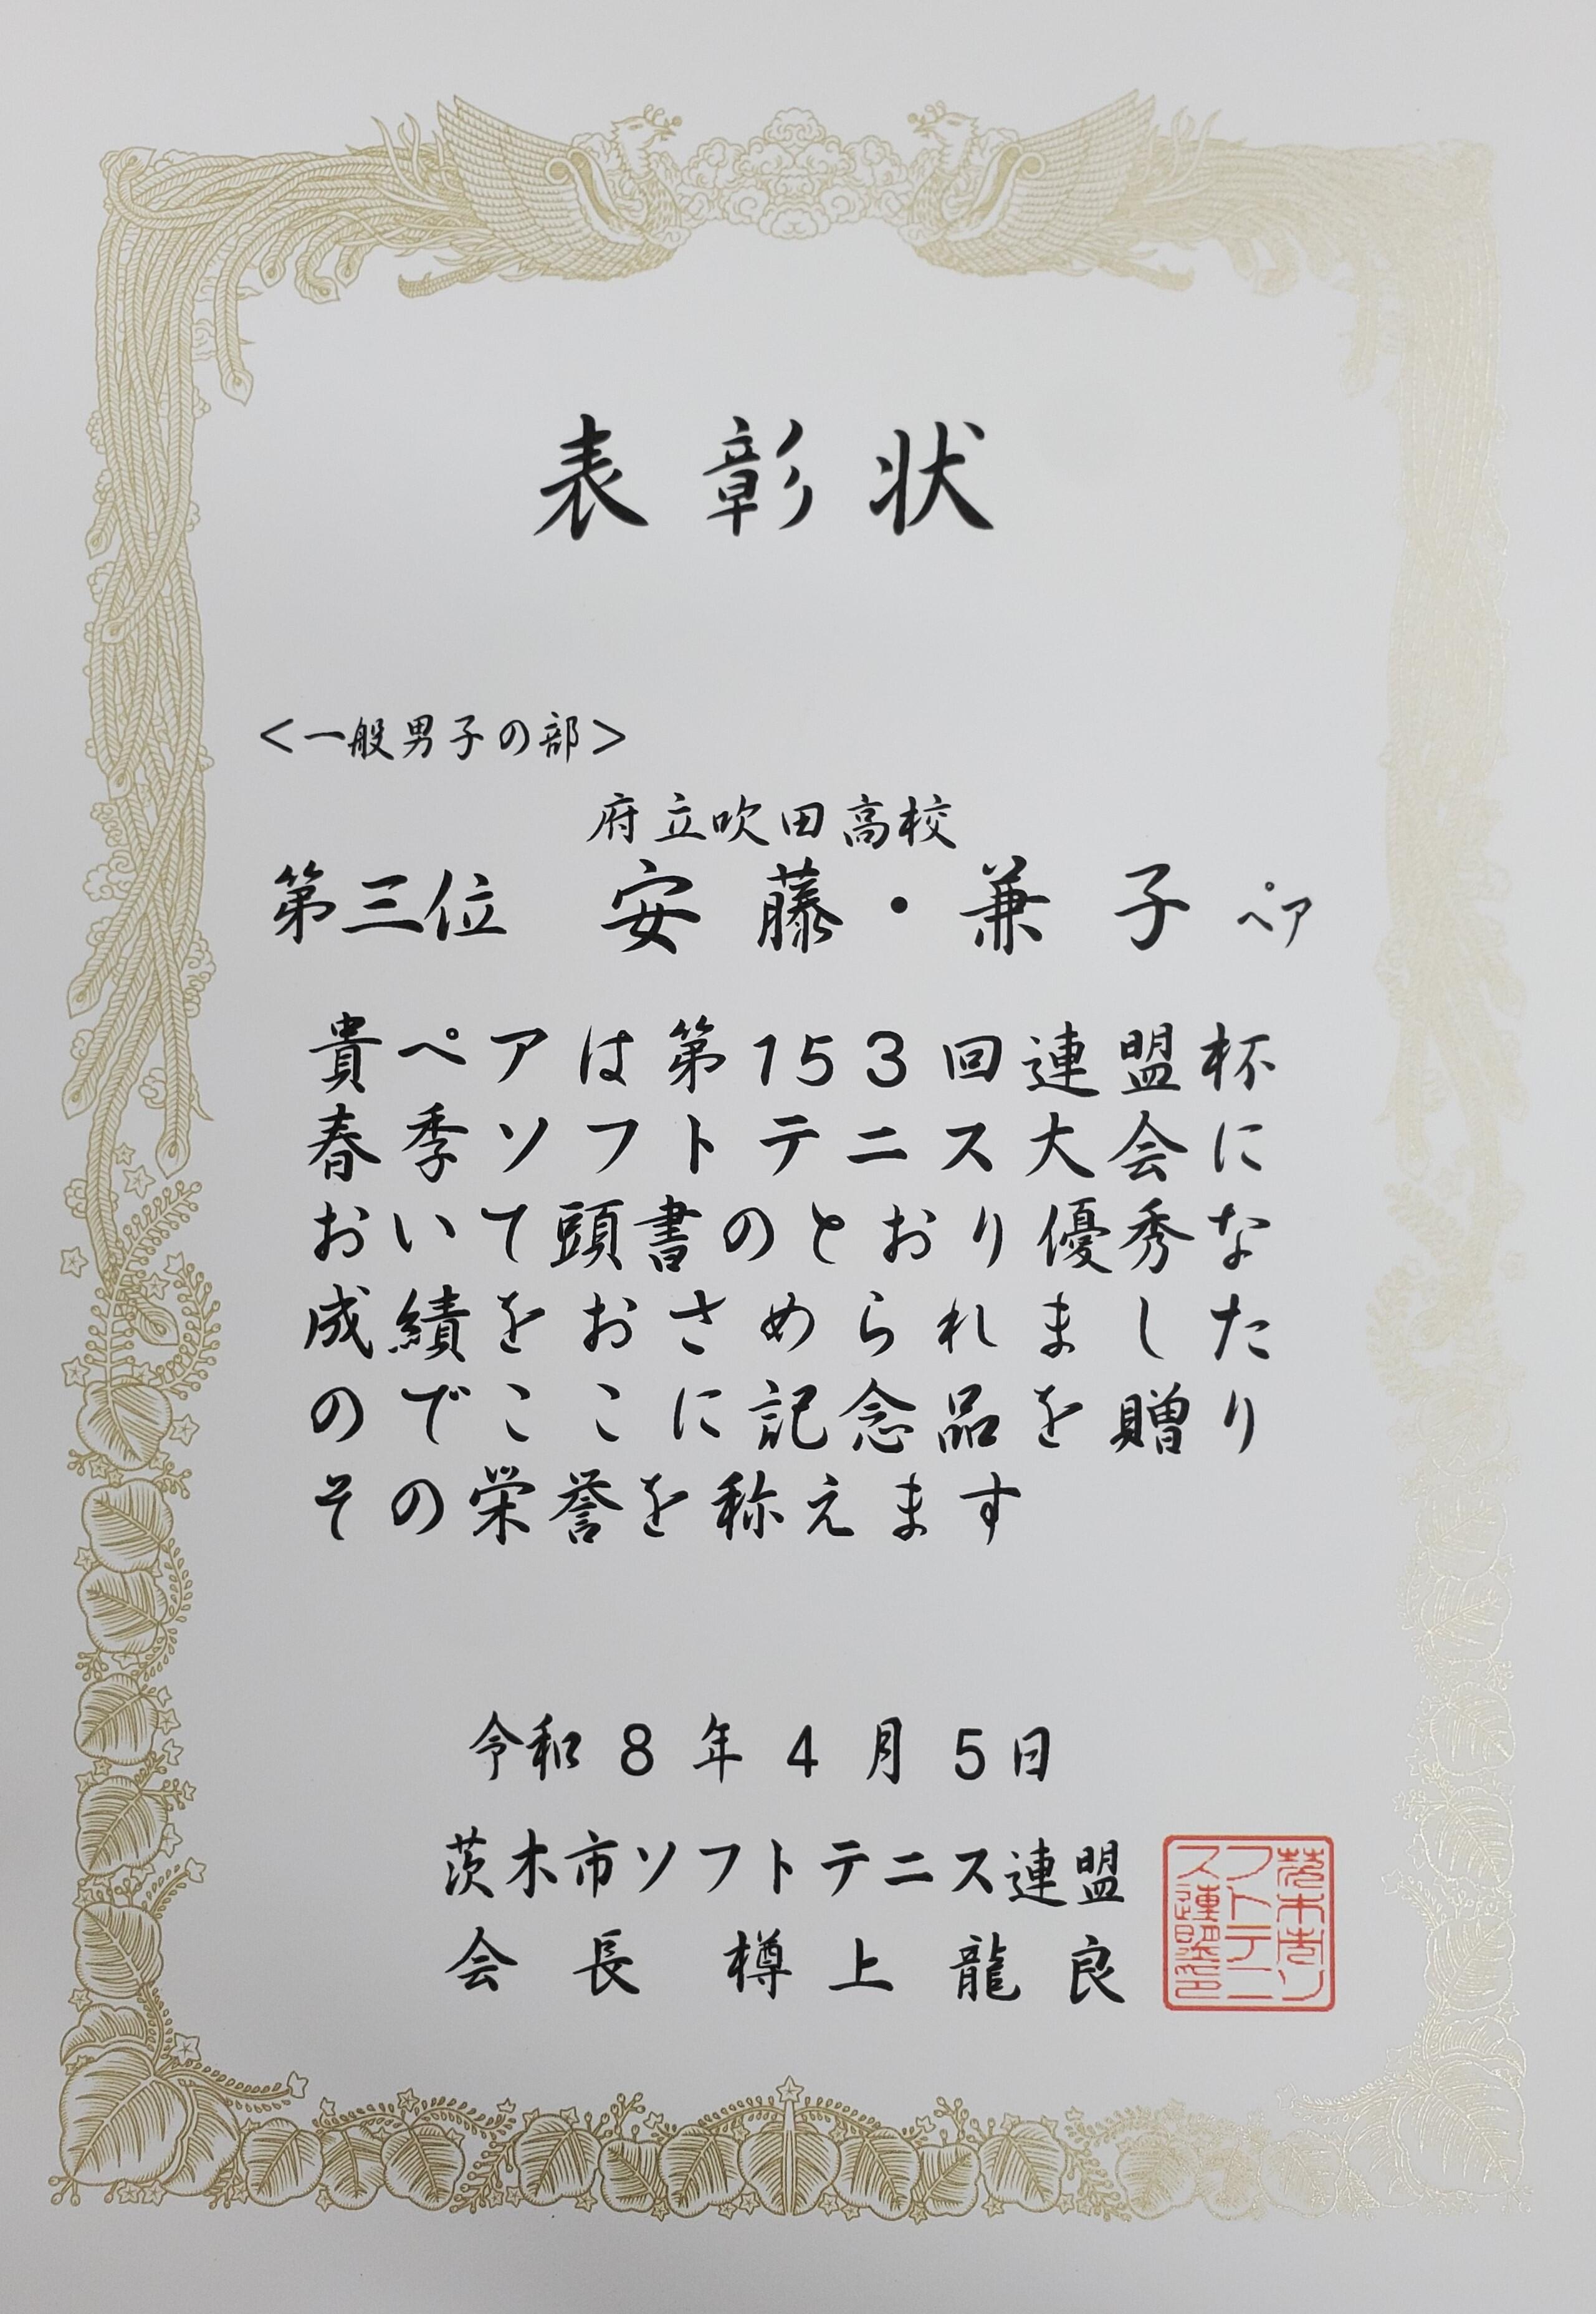 表彰状
<一般男子の部>
府立吹田高校
第三位 安藤・兼子 ペア
貴ペアは第153回連盟杯
春季ソフトテニス大会に
おいて頭書のとおり優秀な
成績をおさめられました
のでここに記念品を贈り
その栄誉を称えます
令和8年4月5日
茨木市ソフトテニス連盟
会長 樽上龍良
茨木市ソ
フトテニ
ス連盟印